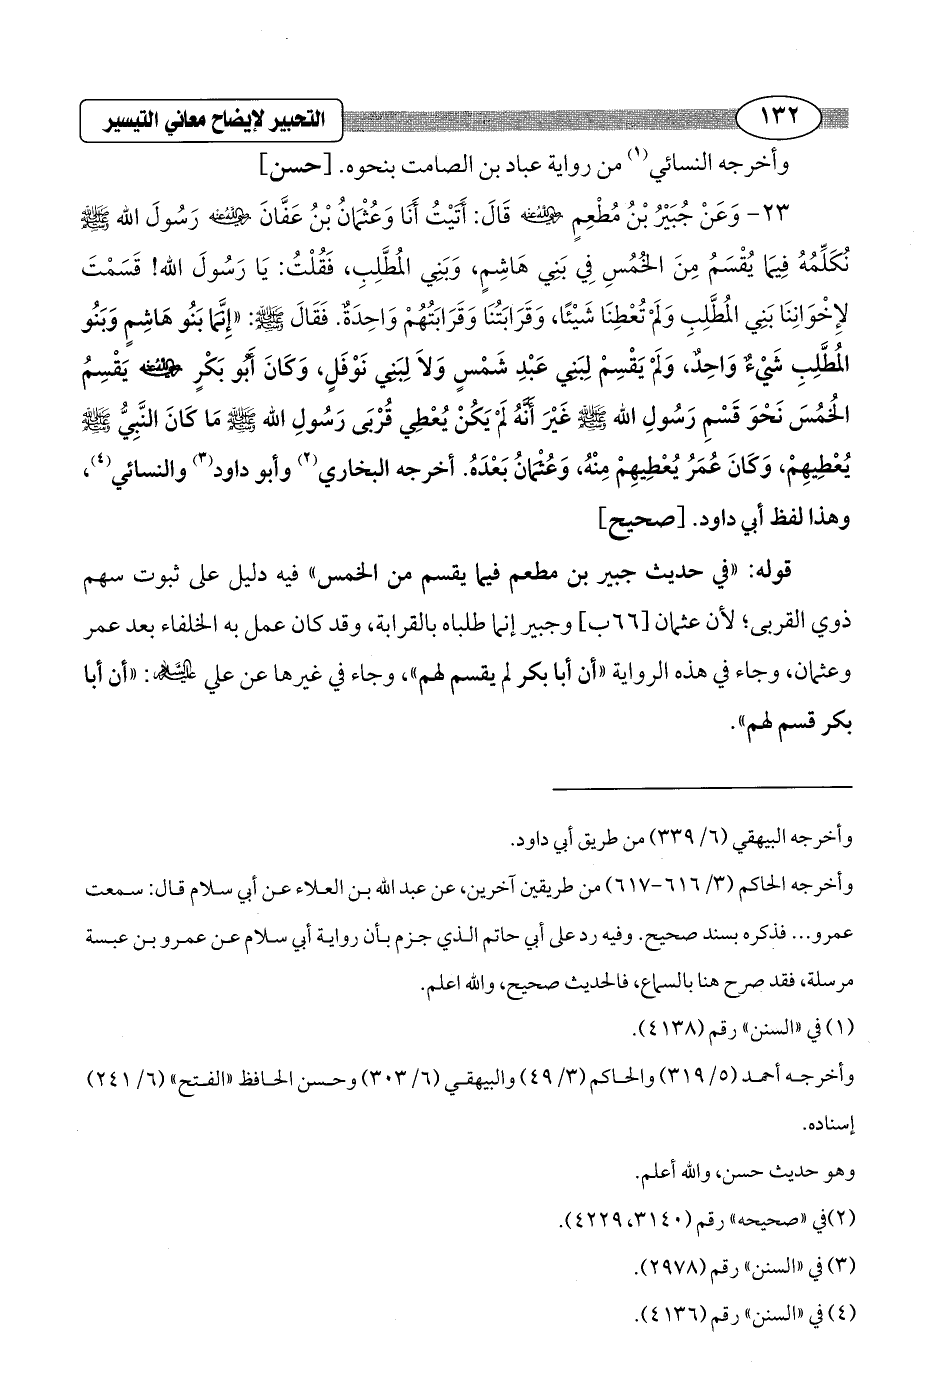 ١٣٢ التحبير لإيضاح معاني التيسير
وأخرجه النسائي(١) من رواية عباد بن الصامت بنحوه. [حسن]
٢٣- وَعَنْ جُبَيْرُ بْنُ مُطْعِمٍ رضي الله عنه قَالَ: أَتَيْتُ أَنَا وَعُثْمَانُ بْنُ عَفَّانَ رضي الله عنه رَسُولَ الله ﷺ
نُكَلِّمُهُ فِيمَا يُقْسَمُ مِنَ الخُمُسِ فِي بَنِي هَاشِمٍ، وَبَنِي المُطَّلِبِ، فَقُلْتُ: يَا رَسُولَ الله! قَسَمْتَ
لإِخْوَانِنَا بَنِي المُطَّلِبِ وَلَمْ تُعْطِنَا شَيْئًا، وَقَرَابَتُنَا وَقَرَابَتُهُمْ وَاحِدَةٌ. فَقَالَ ﷺ: «إِنَّمَا بَنُو هَاشِمٍ وَبَنُو
المُطَّلِبِ شَيْءٌ وَاحِدٌ، وَلَمْ يَقْسِمْ لِبَنِي عَبْدِ شَمْسٍ وَلاَ لِبَنِي نَوْفَلٍ، وَكَانَ أَبُو بَكْرٍ رضي الله عنه يَقْسِمُ
الخُمُسَ نَحْوَ قَسْمِ رَسُولِ الله ﷺ غَيْرَ أَنَّهُ لَمْ يَكُنْ يُعْطِي قُرْبَى رَسُولِ الله ﷺ مَا كَانَ النَّبِيُّ ﷺ
يُعْطِيهِمْ، وَكَانَ عُمَرُ يُعْطِيهِمْ مِنْهُ، وَعُثْمَانُ بَعْدَهُ. أخرجه البخاري(٢) وأبو داود(٣) والنسائي(٤)،
وهذا لفظ أبي داود. [صحيح]
قوله: «في حديث جبير بن مطعم فيما يقسم من الخمس» فيه دليل على ثبوت سهم
ذوي القربى؛ لأن عثمان [٦٦ب] وجبير إنما طلباه بالقرابة، وقد كان عمل به الخلفاء بعد عمر
وعثمان، وجاء في هذه الرواية «أن أبا بكر لم يقسم لهم»، وجاء في غيرها عن علي عليه السلام: «أن أبا
بكر قسم لهم».
وأخرجه البيهقي (٦/ ٣٣٩) من طريق أبي داود.
وأخرجه الحاكم (٣/ ٦١٦-٦١٧) من طريقين آخرين، عن عبد الله بن العلاء عن أبي سلام قال: سمعت
عمرو... فذكره بسند صحيح. وفيه رد على أبي حاتم الذي جزم بأن رواية أبي سلام عن عمرو بن عبسة
مرسلة، فقد صرح هنا بالسماع، فالحديث صحيح، والله اعلم.
(١) في «السنن» رقم (٤١٣٨).
وأخرجه أحمد (٥/ ٣١٩) والحاكم (٣/ ٤٩) والبيهقي (٦/ ٣٠٣) وحسن الحافظ «الفتح» (٦/ ٢٤١)
إسناده.
وهو حديث حسن، والله أعلم.
(٢)في «صحيحه» رقم (٣١٤٠، ٤٢٢٩).
(٣) في «السنن» رقم (٢٩٧٨).
(٤) في «السنن» رقم (٤١٣٦).